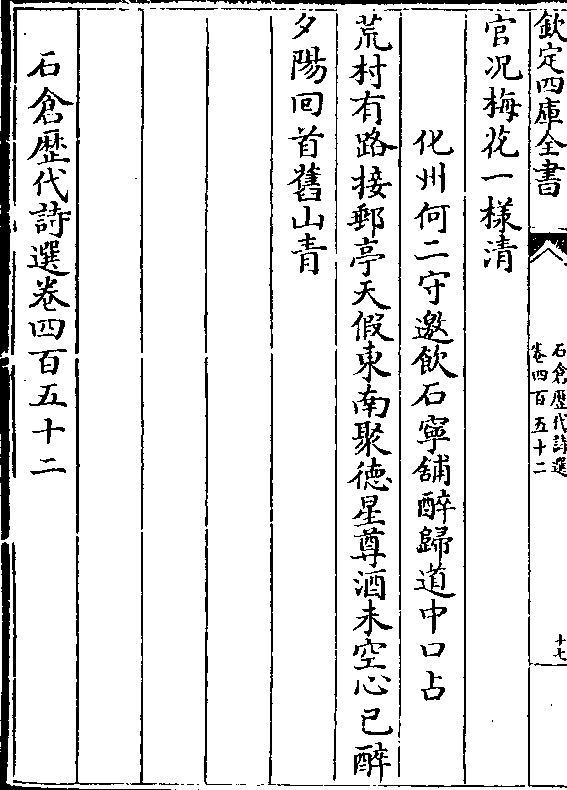 欽定四庫全書
石倉歷代詩選
卷四百五十二
十七
官况梅花一様清
化州何二守邀飲石寧舖醉歸道中口占
荒村有路接郵亭天假東南聚徳星尊酒未空心已醉
夕陽回首舊山青
石倉歴代詩選卷四百五十二